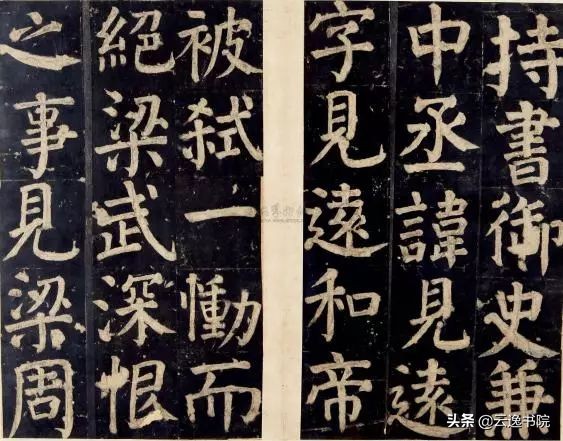 持書御史兼
中丞諱見遠
字見遠和帝
被弑一慟而
絕梁武深恨
之事見梁周
头条 @云逸书院